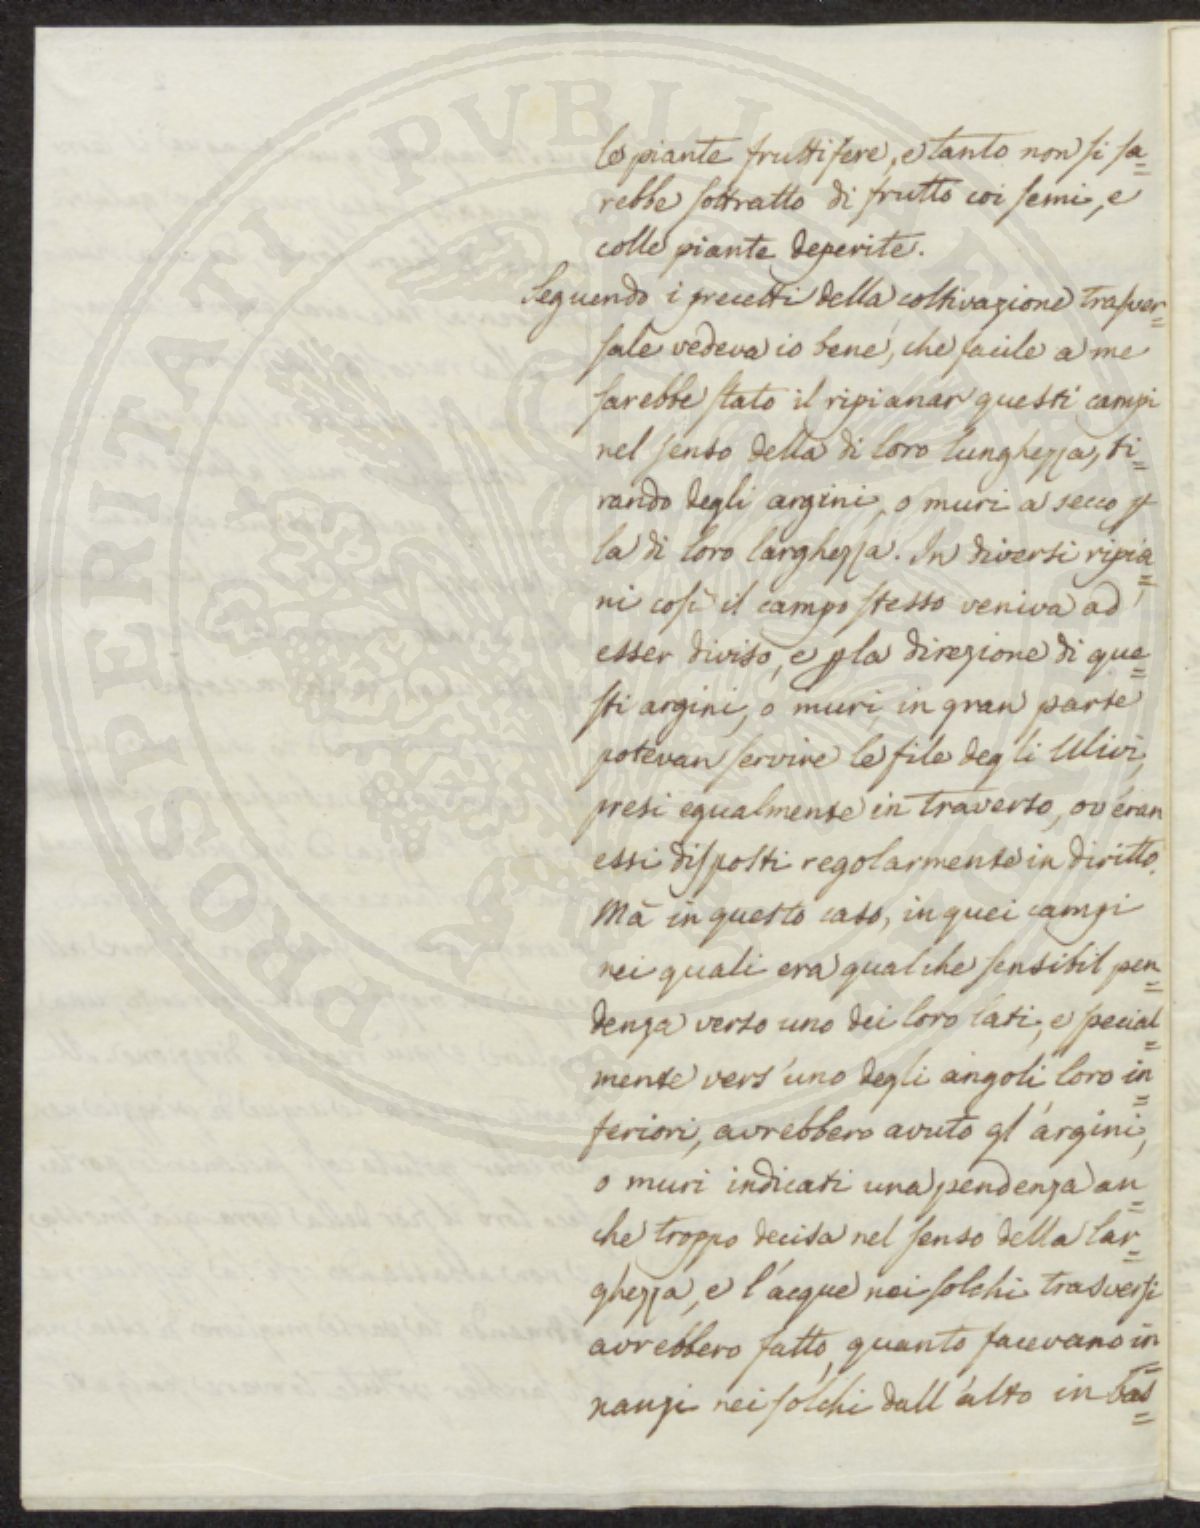 le piante fruttifere, e tanto non si sa=
rebbe sottratto di frutto coi semi, e
colle piante deperite.
Seguendo i precetti della coltivazione trasver=
sale vedeva io bene, che facile a me
sarebbe stato il ripianar questi campi
nel senso della di loro lunghezza, ti=
rando degli argini, o muri a secco p
la di loro larghezza. In diversi ripia=
ni così il campo stesso veniva ad
esser diviso, e p la direzione di que=
sti argini, o muri, in gran parte
potevan servire le file degli Ulivi,
presi egualmente in traverso, ov'eran
essi disposti regolarmente in diritto.
Mà in questo caso, in quei campi
nei quali era qualche sensibil pen=
denza verso uno dei loro lati, e special=
mente vers'uno degli angoli loro in=
feriori, avrebbero avuto gl'argini,
o muri indicati una pendenza an=
che troppo decisa nel senso della lar=
ghezza, e l'acque nei solchi trasversi
avrebbero fatto, quanto facevano in=
nanzi nei solchi dall'alto in bas=
PROSPERITATI PUBLICAE